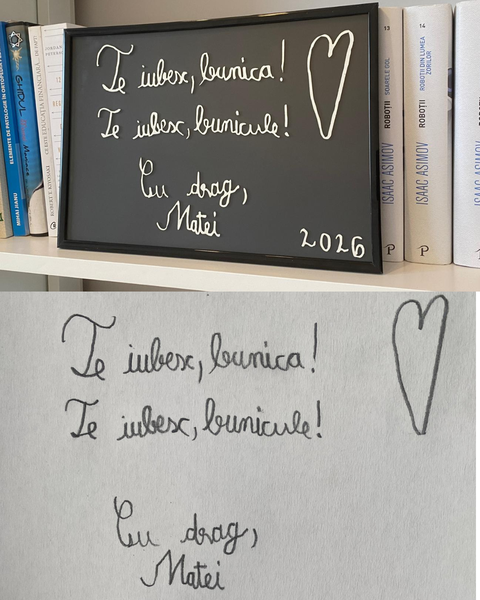 ELEMENTE DE PATOLOGIE ÎN ORTOPEDIA
MIHAI JIANU
GHIDUL
ROBERT T. KIYOSAKI
JORDAN
Te iubesc, bunica!
Te iubesc, bunicule!
Cu drag,
Matei
2026
13
ISAAC ASIMOV
ROBOȚII
SOARELE GOL
P
ISAAC ASIMOV
ROBOȚII
ROBOȚII DIN LUMEA ZORILOR
P
ISAAC ASIMOV
Te iubesc, bunica!
Te iubesc, bunicule!
Cu drag,
Matei